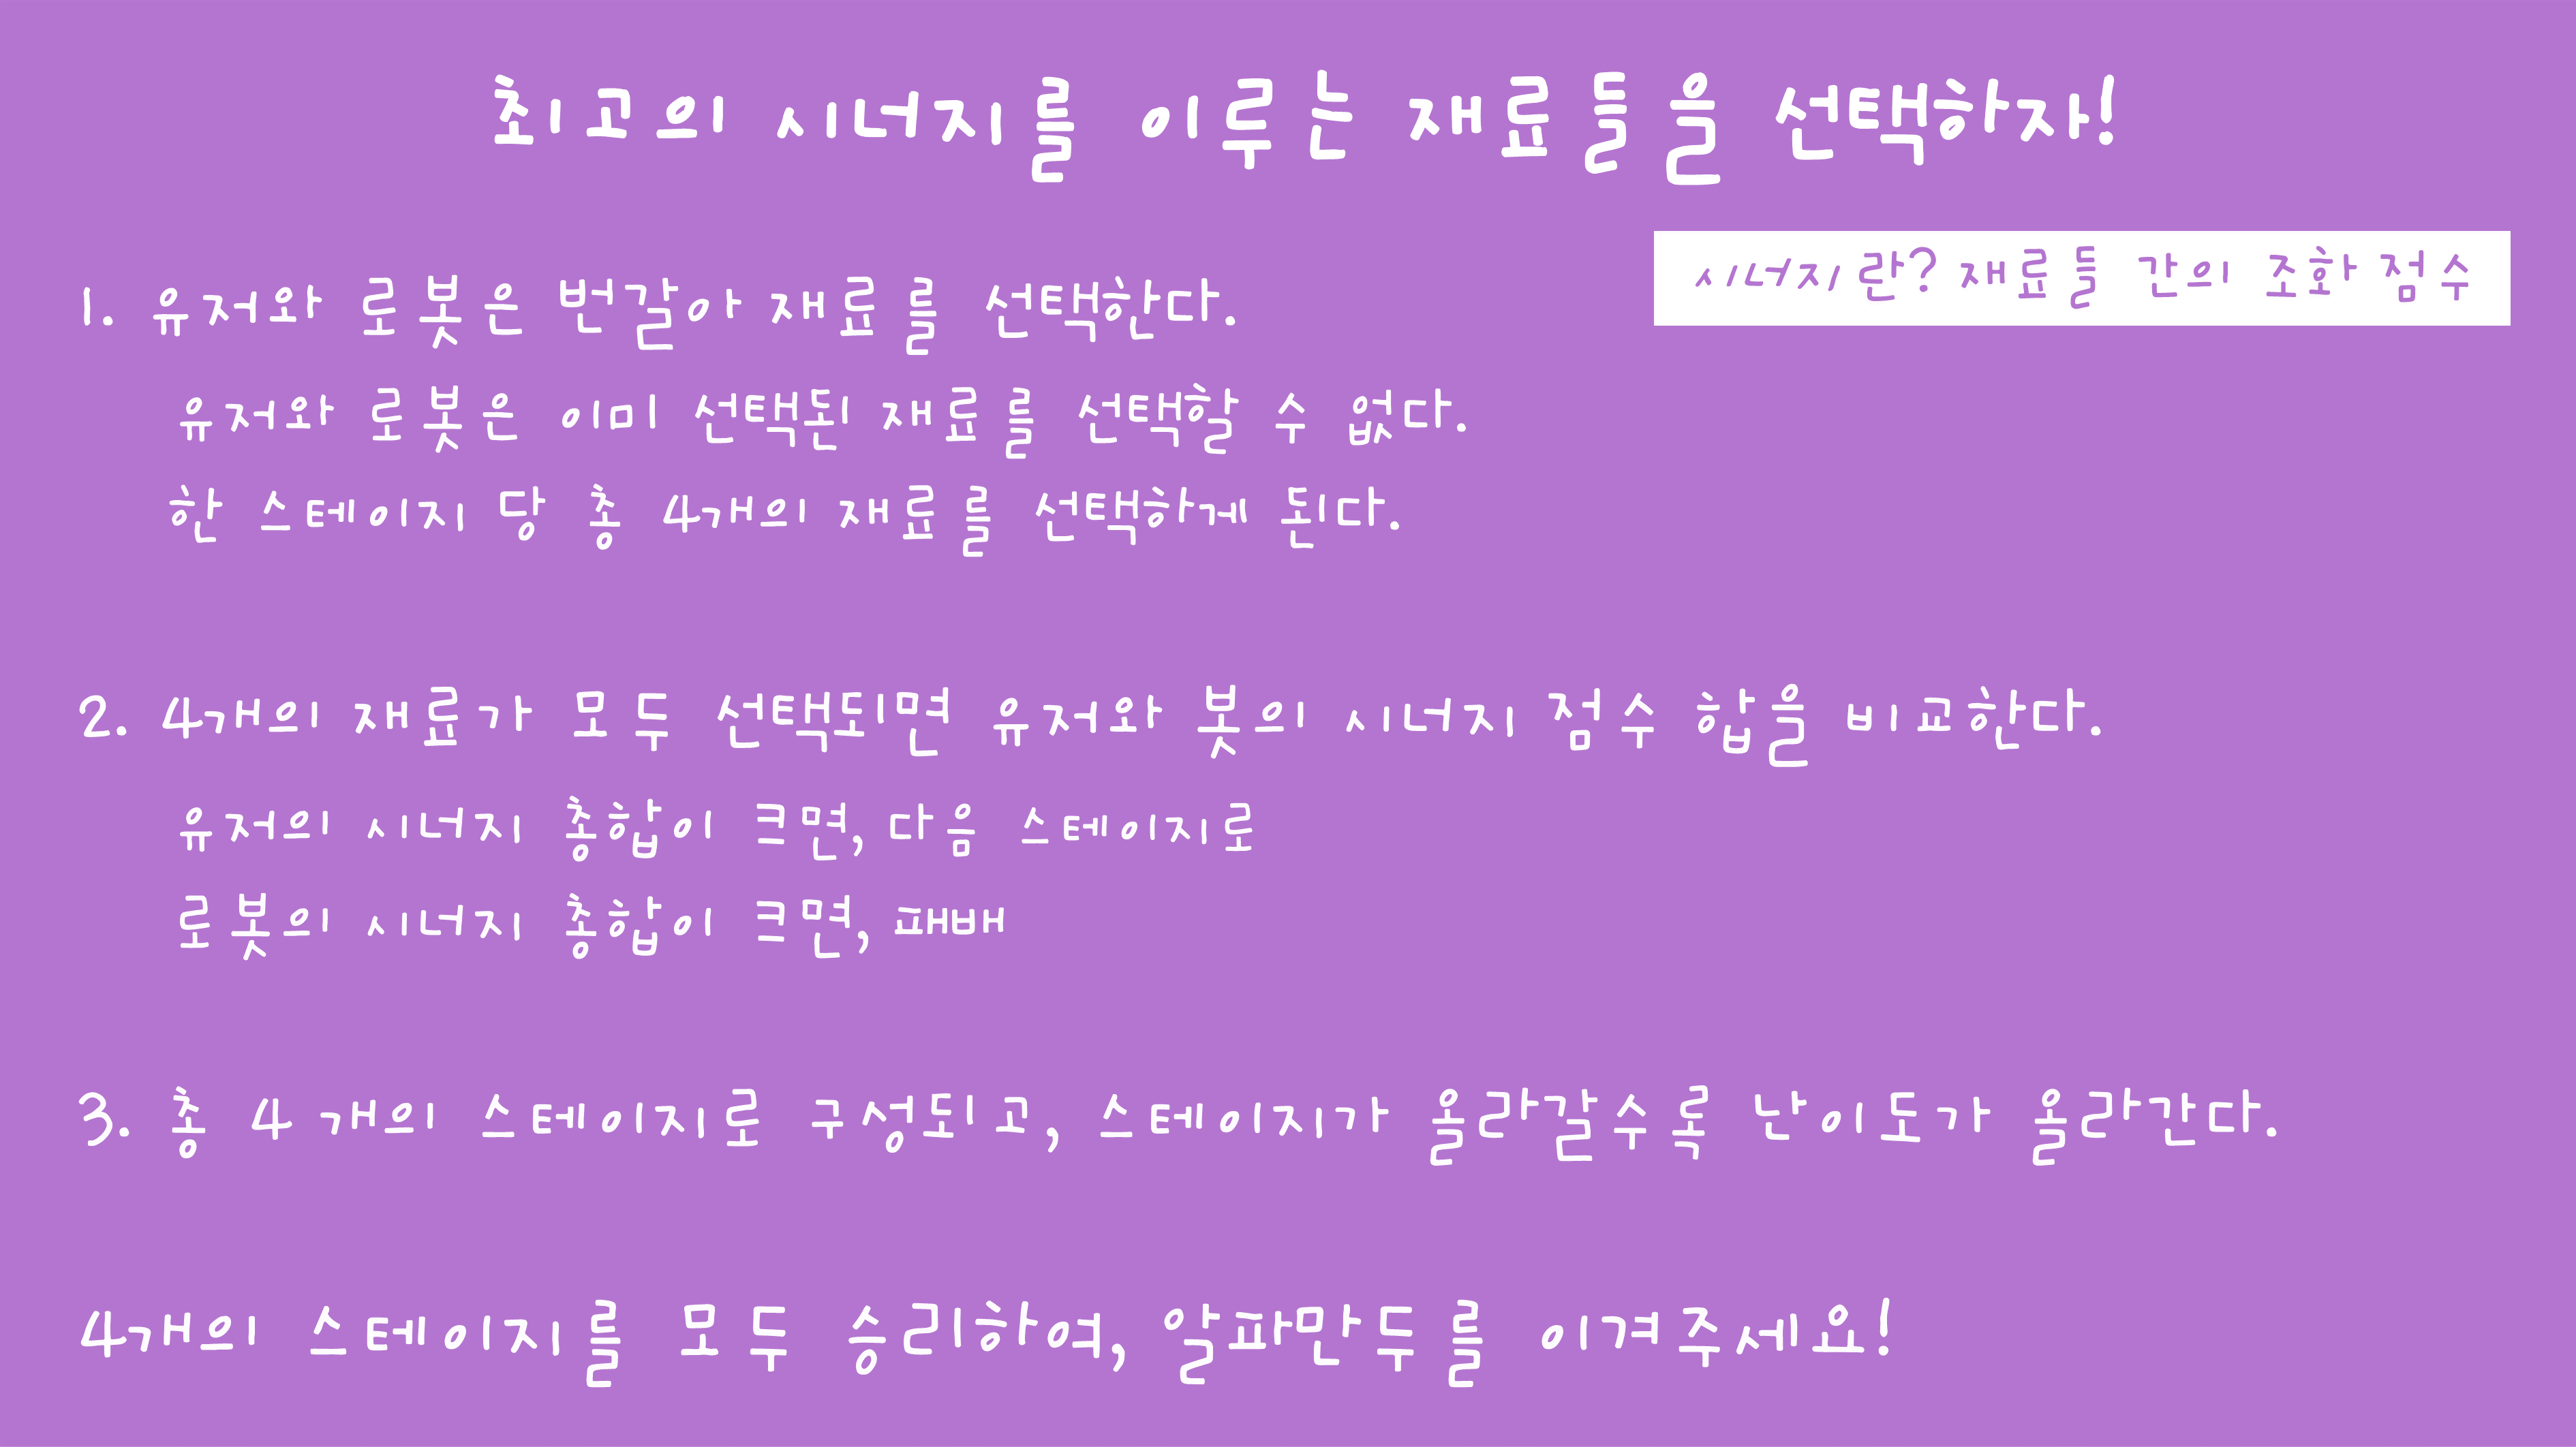 최고의 시너지를 이루는 재료들을 선택하자!
시너지란? 재료들 간의 조화 점수
1. 유저와 로봇은 번갈아 재료를 선택한다.
유저와 로봇은 이미 선택된 재료를 선택할 수 없다.
한 스테이지 당 총 4개의 재료를 선택하게 된다.
2. 4개의 재료가 모두 선택되면 유저와 봇의 시너지 점수 합을 비교한다.
유저의 시너지 총합이 크면, 다음 스테이지로
로봇의 시너지 총합이 크면, 패배
3. 총 4 개의 스테이지로 구성되고, 스테이지가 올라갈수록 난이도가 올라간다.
4개의 스테이지를 모두 승리하여, 알파만두를 이겨주세요!